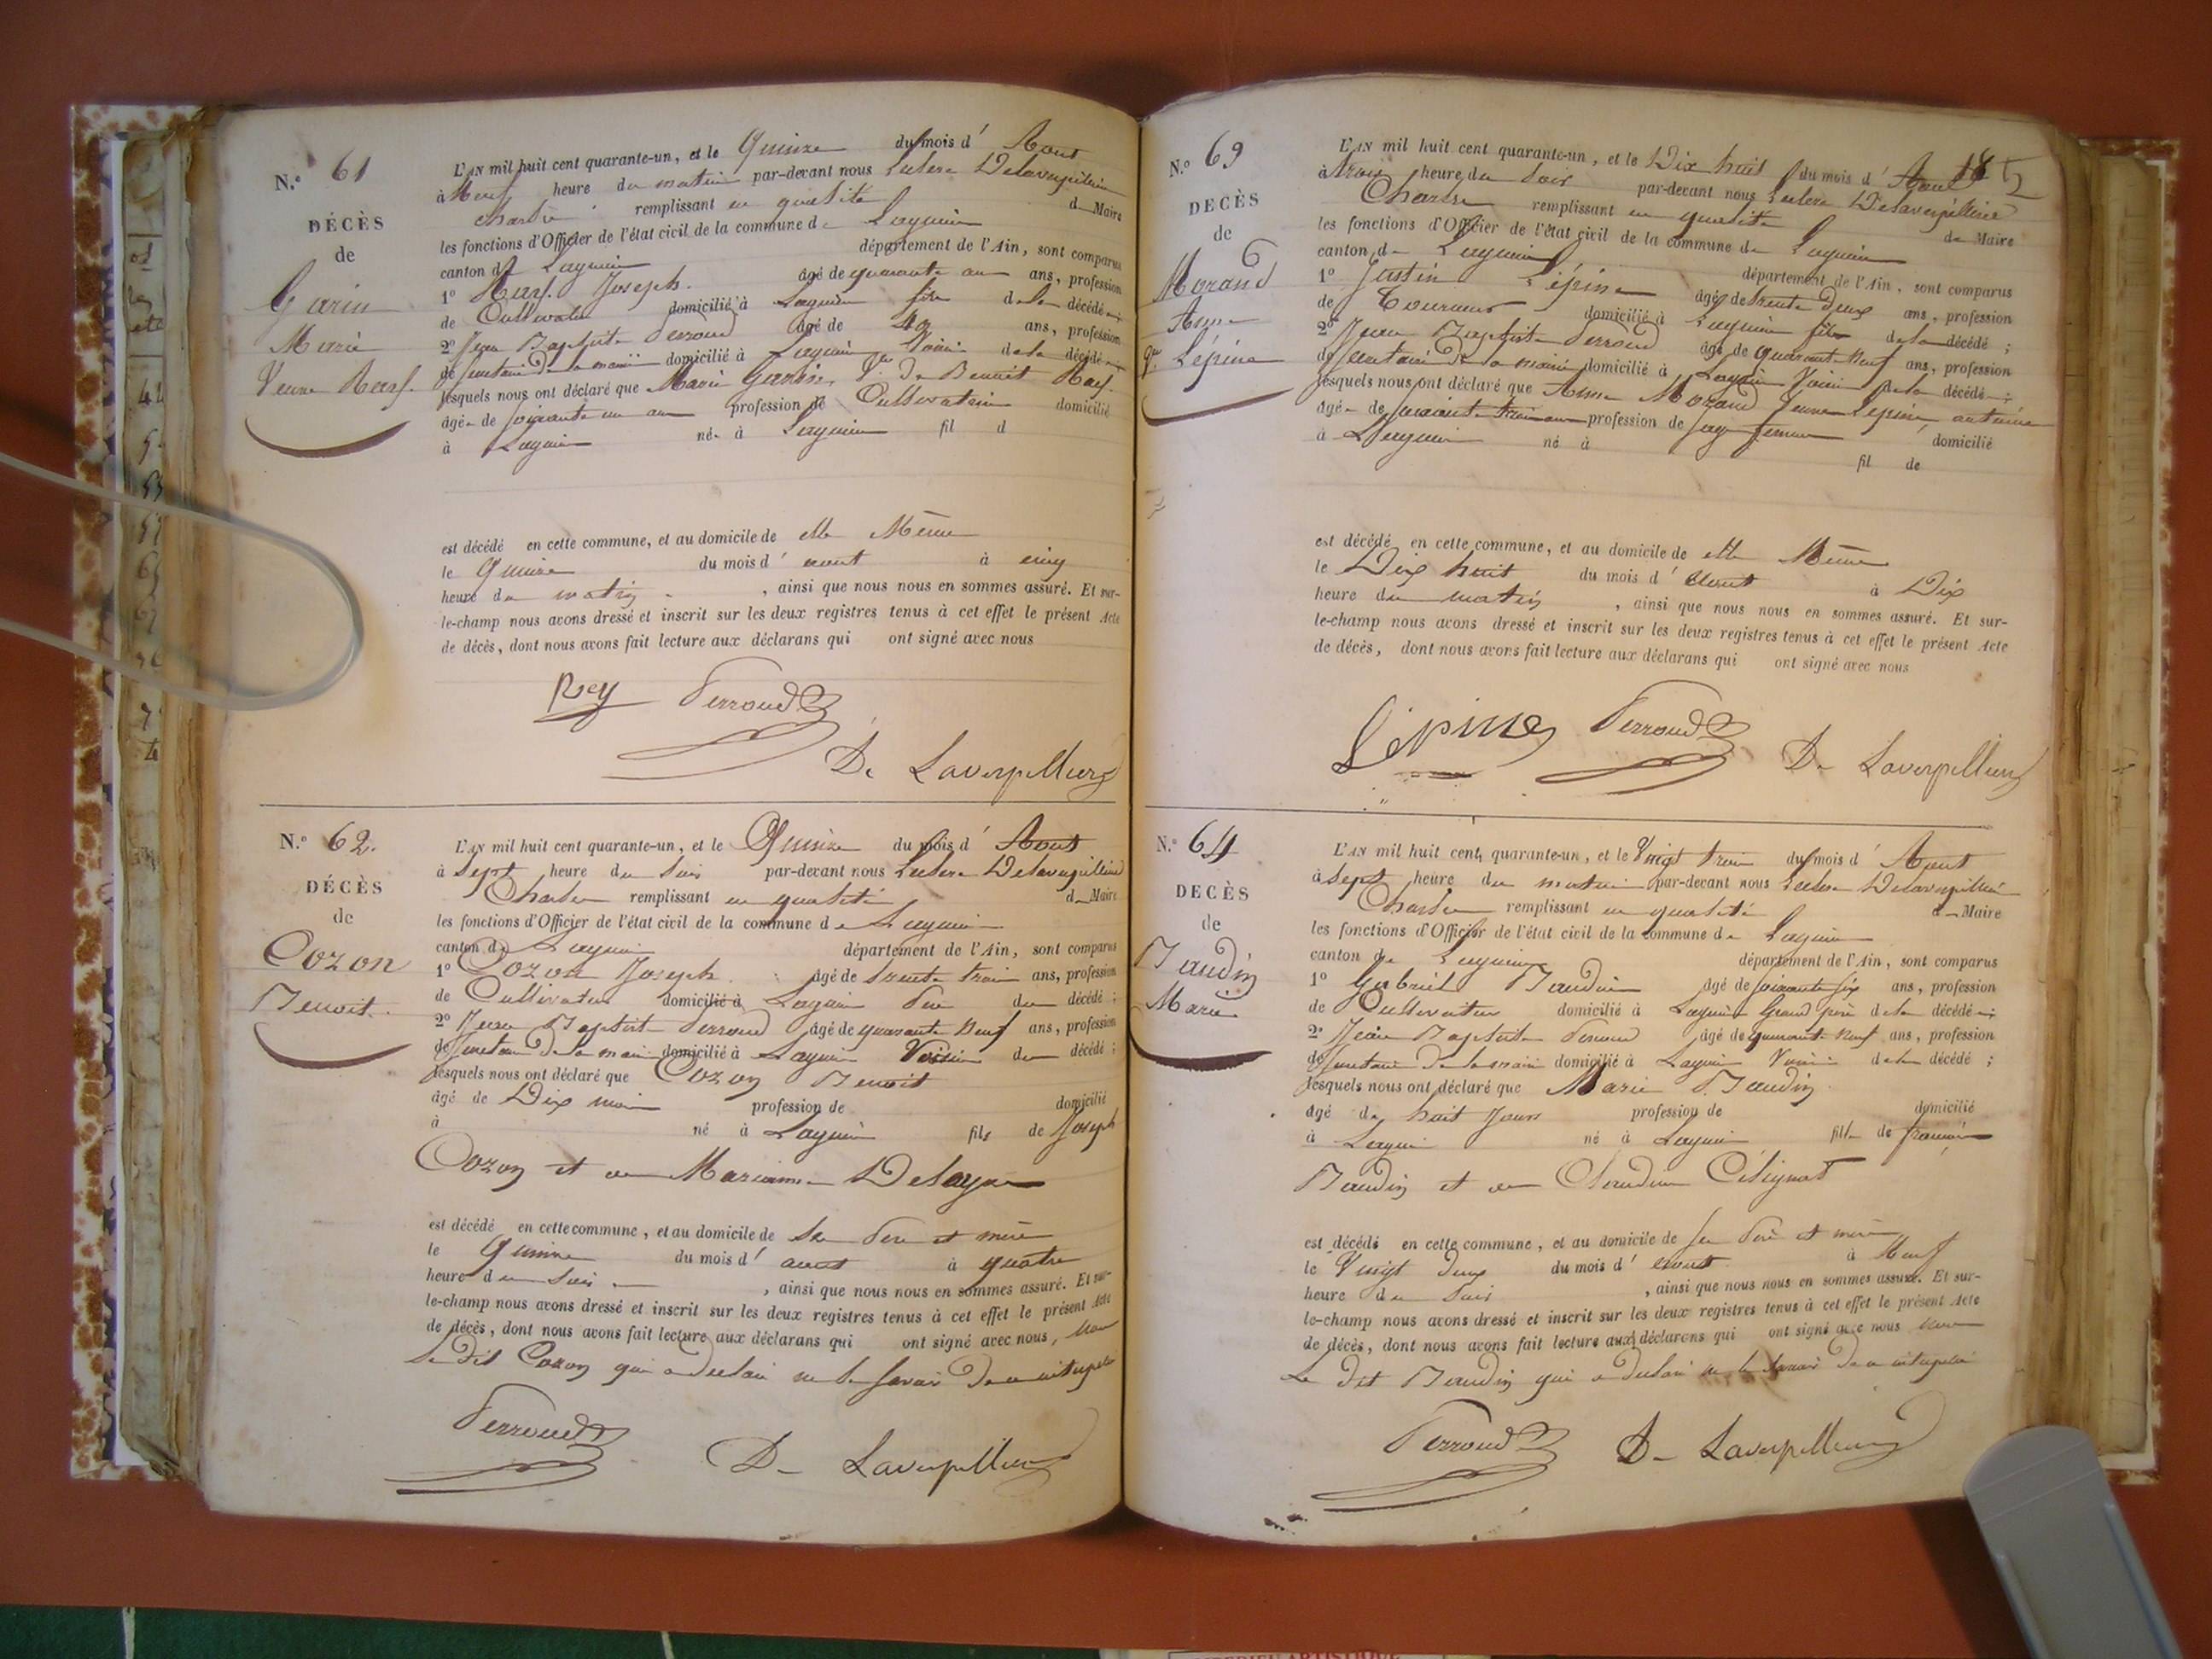 N.° 61
DÉCÈS
de
Garin
Marie
Veuve
L'AN mil huit cent quarante-un, et le Quinze du mois d' Aout
à Neuf heure du matin par-devant nous Delaverpilliere
Charles remplissant en qualité de Maire
les fonctions d'Officier de l'état civil de la commune de Lagnieu
canton de Lagnieu département de l'Ain, sont comparus
1° Joseph âgé de quarante un ans, profession
de Cultivateur domicilié à Lagnieu fils de la décédée
2° Jean Baptiste Perroud âgé de 49 ans, profession
de Secrétaire de la mairie domicilié à Lagnieu Voisin de la décédée
lesquels nous ont déclaré que Marie Garin Ve de Benoit
âgée de soixante un ans profession de Cultivatrice domicilié
à Lagnieu née à Lagnieu fil d
est décédé en cette commune, et au domicile de elle Même
le Quinze du mois d' aout à cinq
heure du matin, ainsi que nous nous en sommes assuré. Et sur-
le-champ nous avons dressé et inscrit sur les deux registres tenus à cet effet le présent Acte
de décès, dont nous avons fait lecture aux déclarans qui ont signé avec nous
Rey Perroud
De Laverpilliere
N.° 62.
DÉCÈS
de
Cozon
Benoit.
L'AN mil huit cent quarante-un, et le Quinze du mois d' Aout
à Sept heure du soir par-devant nous Delaverpilliere
Charles remplissant en qualité de Maire
les fonctions d'Officier de l'état civil de la commune de Lagnieu
canton de Lagnieu département de l'Ain, sont comparus
1° Cozon Joseph âgé de trente trois ans, profession
de Cultivateur domicilié à Lagnieu Père du décédé ;
2° Jean Baptiste Perroud âgé de quarante Neuf ans, profession
de Secrétaire de la mairie domicilié à Lagnieu Voisin du décédé ;
lesquels nous ont déclaré que Cozon Benoit
âgé de Dix mois profession de domicilié
à né à Lagnieu fils de Joseph
Cozon et de Marianne Delaye
est décédé en cette commune, et au domicile de ses Père et mère
le Quinze du mois d' aout à quatre
heure du soir, ainsi que nous nous en sommes assuré. Et sur-
le-champ nous avons dressé et inscrit sur les deux registres tenus à cet effet le présent Acte
de décès, dont nous avons fait lecture aux déclarans qui ont signé avec nous, Non
le dit Cozon qui a déclaré ne le savoir de ce interpellé
Perroud
De Laverpilliere
85
N.° 69
DÉCÈS
de
Morand
Anne
Ve Lépine
L'AN mil huit cent quarante-un, et le Dix huit du mois d' Aout
à trois heure du Soir par-devant nous Delaverpilliere
Charles remplissant en qualité de Maire
les fonctions d'Officier de l'état civil de la commune de Lagnieu
canton de Lagnieu département de l'Ain, sont comparus
1° Justin Lépine âgé de trente Deux ans, profession
de Tourneur domicilié à Lagnieu fils de la décédé ;
2° Jean Baptiste Perroud âgé de quarante Neuf ans, profession
de Secrétaire de la mairie domicilié à Lagnieu Voisin de la décédé ;
lesquels nous ont déclaré que Anne Morand Veuve Lépine antoine
âgée de soixante trois ans profession de sage femme domicilié
à Lagnieu né à fil de
est décédé en cette commune, et au domicile de elle Même
le Dix huit du mois d' Aout à Dix
heure du matin, ainsi que nous nous en sommes assuré. Et sur-
le-champ nous avons dressé et inscrit sur les deux registres tenus à cet effet le présent Acte
de décès, dont nous avons fait lecture aux déclarans qui ont signé avec nous
Lépine Perroud De Laverpilliere
N.° 64
DÉCÈS
de
Baudin
Marie
L'AN mil huit cent quarante-un, et le Vingt trois du mois d' Aout
à Sept heure du matin par-devant nous Delaverpilliere
Charles remplissant en qualité de Maire
les fonctions d'Officier de l'état civil de la commune de Lagnieu
canton de Lagnieu département de l'Ain, sont comparus
1° Gabriel Baudin âgé de soixante six ans, profession
de Cultivateur domicilié à Lagnieu Grand père de la décédée
2° Jean Baptiste Perroud âgé de quarante Neuf ans, profession
de Secrétaire de la mairie domicilié à Lagnieu Voisin de la décédé ;
lesquels nous ont déclaré que Marie Baudin
âgé de huit Jours profession de domicilié
à Lagnieu né à Lagnieu fille de françois
Baudin et de Claudine
est décédé en cette commune, et au domicile de ses Père et mère
le Vingt deux du mois d' aout à Neuf
heure du Soir, ainsi que nous nous en sommes assuré. Et sur-
le-champ nous avons dressé et inscrit sur les deux registres tenus à cet effet le présent Acte
de décès, dont nous avons fait lecture aux déclarans qui ont signé avec nous non
Le dit Baudin qui a déclaré ne le savoir de ce interpellé
Perroud De Laverpilliere